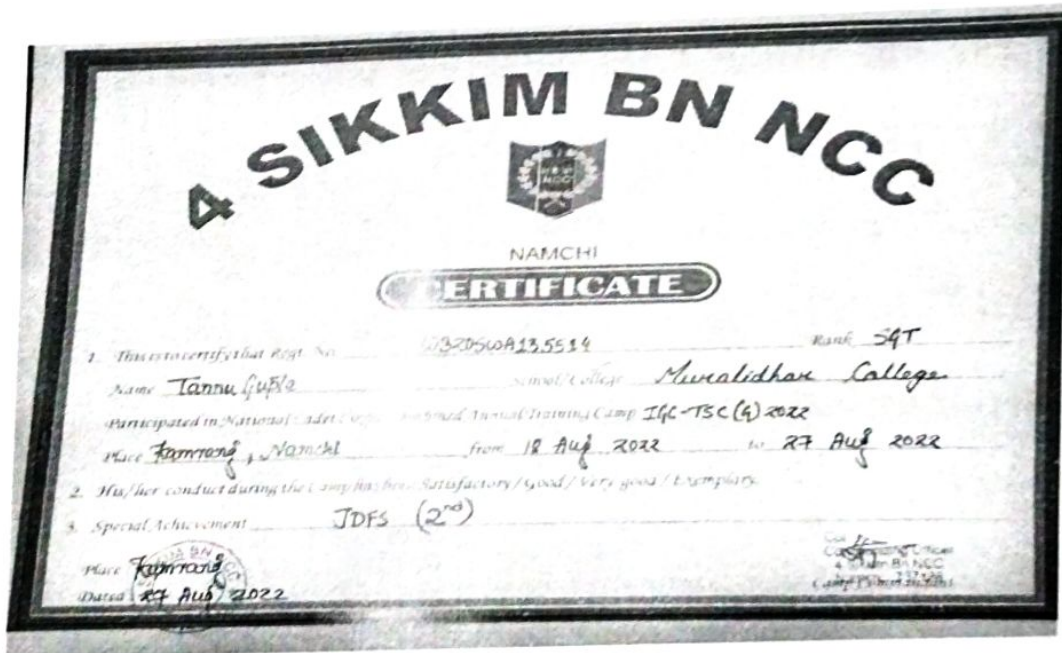 4 SIKKIM BN NCC
NCC
NAMCHI
CERTIFICATE
1. This is to certify that Regt. No. Rank SGT
Name Tannu Gupta School/College Muralidhar College
Participated in National Cadet Corps Annual Training Camp IGC-TSC (G) 2022
Place Kamrang, Namchi from 18 Aug 2022 to 27 Aug 2022
2. His/her conduct during the Camp has been Satisfactory / Good / Very good / Exemplary.
3. Special Achievement JDFS (2nd)
Place Kamrang
Dated 27 Aug 2022
Col
Commanding Officer
4 Sikkim BN NCC
Camp Commandant